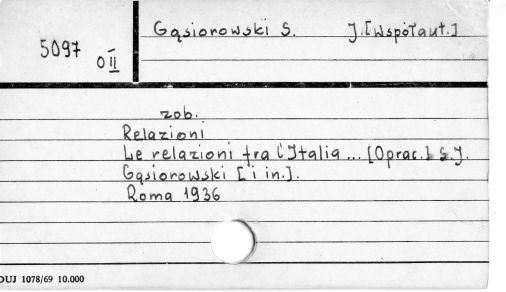 Gąsiorowski S. J. [Współaut.]
5097
O II
zob.
Relazioni
Le relazioni fra l'Italia ... [Oprac.] S.J.
Gąsiorowski [i in.].
Roma 1936
DUJ 1078/69 10.000